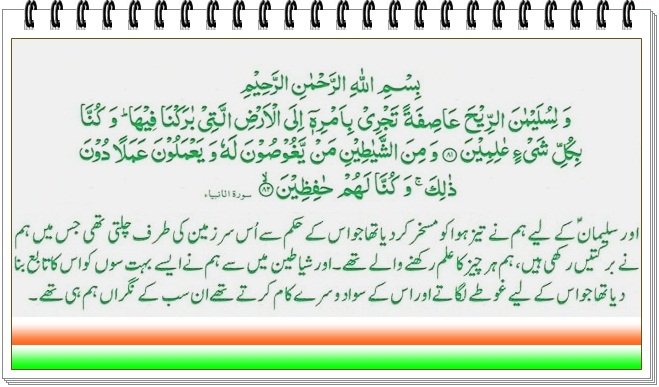 بِسْمِ اللهِ الرَّحْمٰنِ الرَّحِيْمِ
وَ لِسُلَيْمٰنَ الرِّيْحَ عَاصِفَةً تَجْرِيْ بِاَمْرِهٖٓ اِلَى الْاَرْضِ الَّتِيْ بٰرَكْنَا فِيْهَا ؕ وَ كُنَّا
بِكُلِّ شَيْءٍ عٰلِمِيْنَ ﴿۸۱﴾ وَ مِنَ الشَّيٰطِيْنِ مَنْ يَّغُوْصُوْنَ لَهٗ وَ يَعْمَلُوْنَ عَمَلًا دُوْنَ
ذٰلِكَ ۚ وَ كُنَّا لَهُمْ حٰفِظِيْنَ ﴿ۙ۸۲﴾ سورۃ الانبیاء
اور سلیمانؑ کے لیے ہم نے تیز ہوا کو مسخر کر دیا تھا جو اس کے حکم سے اُس سرزمین کی طرف چلتی تھی جس میں ہم
نے برکتیں رکھی ہیں، ہم ہر چیز کا علم رکھنے والے تھے۔ اور شیاطین میں سے ہم نے ایسے بہت سوں کو اس کا تابع بنا
دیا تھا جو اس کے لیے غوطے لگاتے اور اس کے سوا دوسرے کام کرتے تھے ان سب کے نگراں ہم ہی تھے۔